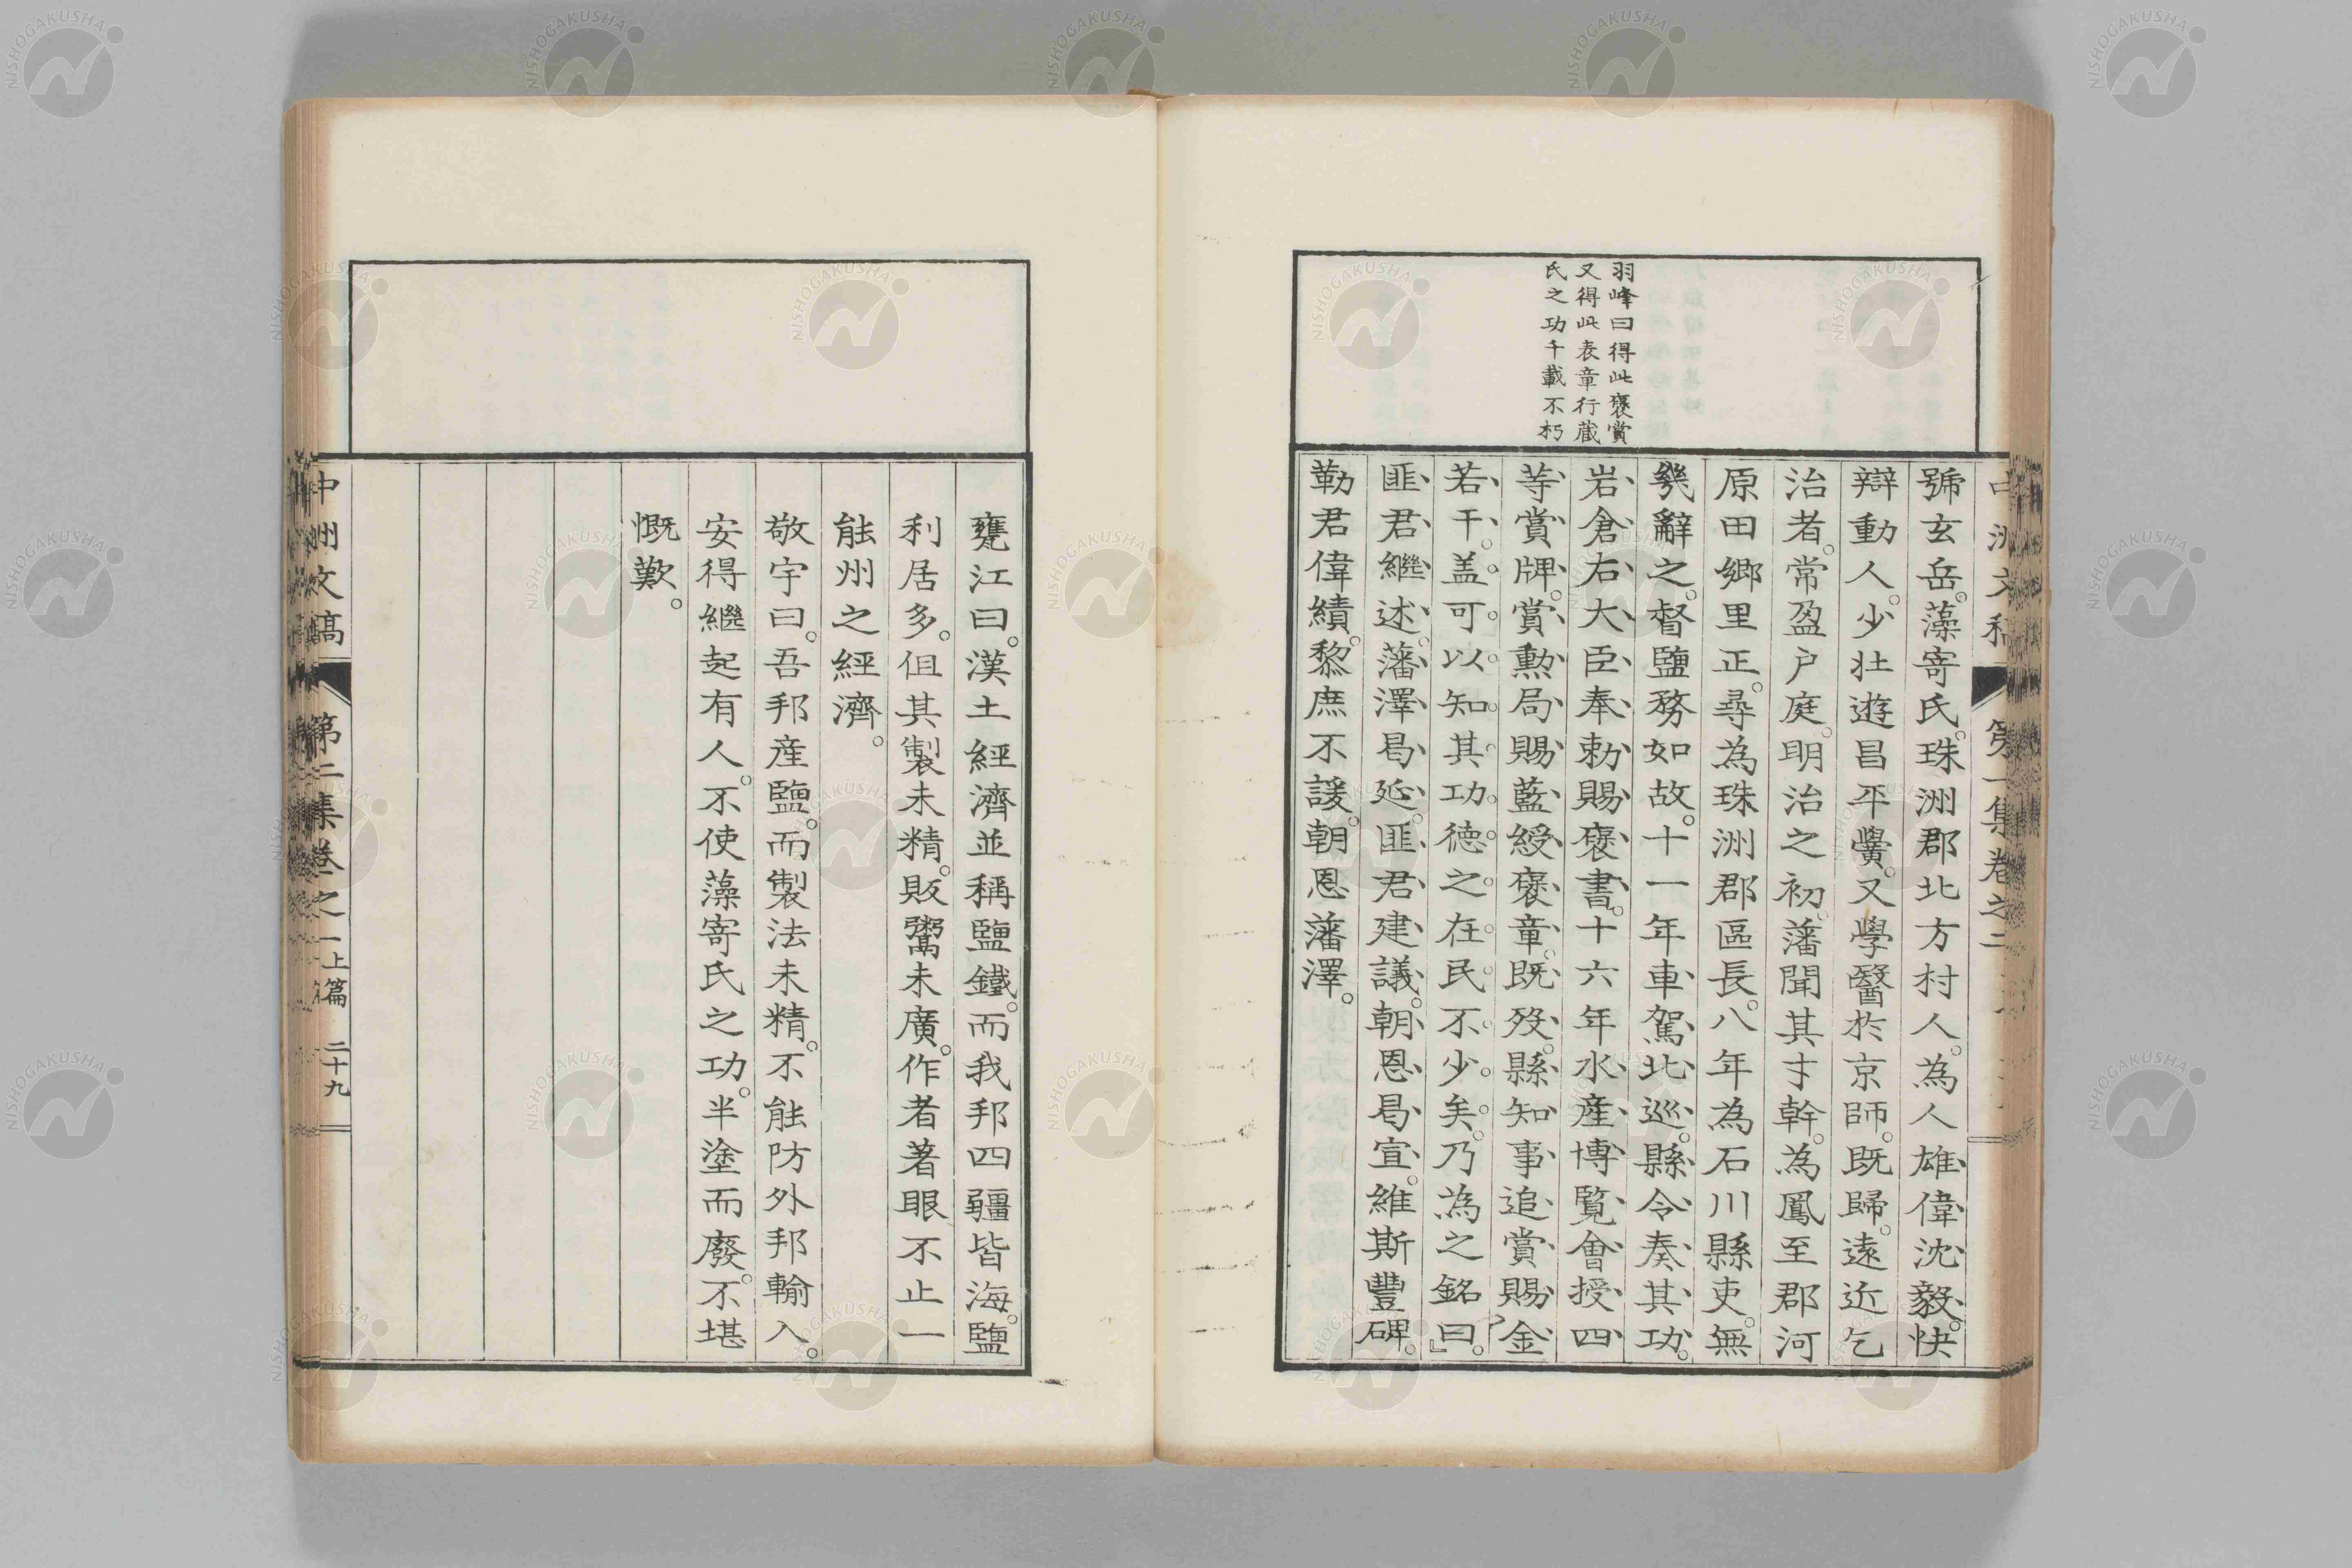 羽峰曰得此褒賞
又得此表章行蔵
氏之功千載不朽
號玄岳。藻寄氏。珠洲郡北方村人。為人雄偉沈毅。快
辯動人。少壯遊昌平黌。又學醫於京師。既歸。遠近乞
治者。常盈戸庭。明治之初。藩聞其才幹。為鳳至郡河
原田鄉里正。尋為珠洲郡區長。八年為石川縣吏。無
幾辭之。督鹽務如故。十一年車駕北巡。縣令奏其功。
岩倉右大臣奉勅賜褒書。十六年水產博覧會授四
等賞牌。賞勲局賜藍綬褒章。既歿。縣知事追賞賜金
若干。盖可以知其功德之在民不少矣。乃為之銘曰。』
匪君繼述。藩澤曷延。匪君建議。朝恩曷宣。維斯豐碑。
勒君偉績。黎庶不諼。朝恩藩澤。
甕江曰。漢土經濟並稱鹽鐵。而我邦四疆皆海。鹽
利居多。但其製未精。販鬻未廣。作者著眼不止一
能州之經濟。
敬宇曰。吾邦産鹽。而製法未精。不能防外邦輸入。
安得繼起有人。不使藻寄氏之功。半塗而廢。不堪
慨歎。
中洲文稿 第二集卷之一上篇 二十九